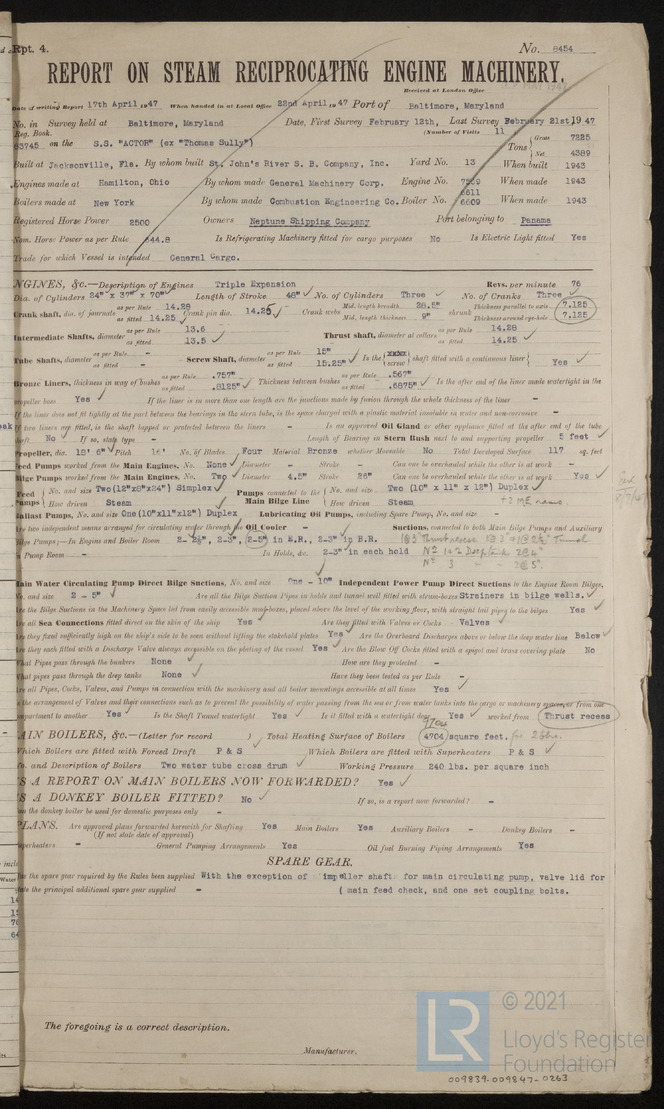 Rpt. 4.
No. 8454
REPORT ON STEAM RECIPROCATING ENGINE MACHINERY.
Received at London Office
Date of writing Report 17th April 1947 When handed in at Local Office 22nd April 1947 Port of Baltimore, Maryland
No. in Survey held at Baltimore, Maryland Date, First Survey February 12th, Last Survey February 21st 1947
Reg. Book. (Number of Visits 11
83745 on the S.S. "ACTOR" (ex "Thomas Sully") Tons Gross 7225
Net 4389
Built at Jacksonville, Fla. By whom built St. John's River S. B. Company, Inc. Yard No. 13 When built 1943
Engines made at Hamilton, Ohio By whom made General Machinery Corp. Engine No. When made 1943
Boilers made at New York By whom made Combustion Engineering Co. Boiler No. 6611 6609 When made 1943
Registered Horse Power 2500 Owners Neptune Shipping Company Port belonging to Panama
Nom. Horse Power as per Rule 544.8 Is Refrigerating Machinery fitted for cargo purposes No Is Electric Light fitted Yes
Trade for which Vessel is intended General Cargo.
NGINES, &c.—Description of Engines Triple Expansion Revs. per minute 76
Dia. of Cylinders 24" x 37" x 70" Length of Stroke 48" No. of Cylinders Three No. of Cranks Three
Crank shaft, dia. of journals as per Rule 14.28 as fitted 14.25 Crank pin dia. 14.25 Crank webs Mid. length breadth 28.5" Mid. length thickness 9" shrunk Thickness parallel to axis 7.125 Thickness around eye-hole 7.125
Intermediate Shafts, diameter as per Rule 13.6 as fitted 13.5 Thrust shaft, diameter at collars as per Rule 14.28 as fitted 14.25
Tube Shafts, diameter as per Rule - as fitted - Screw Shaft, diameter as per Rule 15" as fitted 15.25" Is the screw shaft fitted with a continuous liner Yes
Bronze Liners, thickness in way of bushes as per Rule .757" as fitted .8125" Thickness between bushes as per Rule .567" as fitted .6875" Is the after end of the liner made watertight in the
propeller boss Yes If the liner is in more than one length are the junctions made by fusion through the whole thickness of the liner -
If the liner does not fit tightly at the part between the bearings in the stern tube, is the space charged with a plastic material insoluble in water and non-corrosive -
If two liners are fitted, is the shaft lapped or protected between the liners - Is an approved Oil Gland or other appliance fitted at the after end of the tube
shaft. No If so, state type - Length of Bearing in Stern Bush next to and supporting propeller 5 feet
Propeller, dia. 18' 6" Pitch 16' No. of Blades Four Material Bronze whether Moveable No Total Developed Surface 117 sq. feet
Feed Pumps worked from the Main Engines, No. None Diameter - Stroke - Can one be overhauled while the other is at work -
Bilge Pumps worked from the Main Engines, No. Two Diameter 4.5" Stroke 26" Can one be overhauled while the other is at work Yes
Feed Pumps No. and size Two(12"x8"x24") Simplex Pumps connected to the Main Bilge Line No. and size Two (10" x 11" x 12") Duplex
How driven Steam How driven Steam
Ballast Pumps, No. and size One(10"x11"x12") Duplex Lubricating Oil Pumps, including Spare Pump, No. and size -
Are two independent means arranged for circulating water through the Oil Cooler - Suctions, connected to both Main Bilge Pumps and Auxiliary
Bilge Pumps;—In Engine and Boiler Room 2-2½", 2-3", 2-5" in E.R, 2-3" in B.R.
In Pump Room - In Holds, &c. 2-3" in each hold
Main Water Circulating Pump Direct Bilge Suctions, No. and size One - 10" Independent Power Pump Direct Suctions to the Engine Room Bilges,
No. and size 2 - 5" Are all the Bilge Suction Pipes in holds and tunnel well fitted with strum-boxes Strainers in bilge wells.
Are the Bilge Suctions in the Machinery Space led from easily accessible mud-boxes, placed above the level of the working floor, with straight tail pipes to the bilges Yes
Are all Sea Connections fitted direct on the skin of the ship Yes Are they fitted with Valves or Cocks Valves
Are they fixed sufficiently high on the ship's side to be seen without lifting the stokehold plates Yes Are the Overboard Discharges above or below the deep water line Below
Are they each fitted with a Discharge Valve always accessible on the plating of the vessel Yes Are the Blow Off Cocks fitted with a spigot and brass covering plate No
What Pipes pass through the bunkers None How are they protected -
What pipes pass through the deep tanks None Have they been tested as per Rule -
Are all Pipes, Cocks, Valves, and Pumps in connection with the machinery and all boiler mountings accessible at all times Yes
Is the arrangement of Valves and their connections such as to prevent the possibility of water passing from the sea or from water tanks into the cargo or machinery spaces, or from one
compartment to another Yes Is the Shaft Tunnel watertight Yes Is it fitted with a watertight door Yes worked from Thrust recess
9704
AIN BOILERS, &c.—(Letter for record ) Total Heating Surface of Boilers 4704 square feet.
Which Boilers are fitted with Forced Draft P & S Which Boilers are fitted with Superheaters P & S
No. and Description of Boilers Two water tube cross drum Working Pressure 240 lbs. per square inch
IS A REPORT ON MAIN BOILERS NOW FORWARDED? Yes
IS A DONKEY BOILER FITTED? No If so, is a report now forwarded? -
Can the donkey boiler be used for domestic purposes only -
PLANS. Are approved plans forwarded herewith for Shafting Yes Main Boilers Yes Auxiliary Boilers - Donkey Boilers -
(If not state date of approval)
Superheaters - General Pumping Arrangements Yes Oil fuel Burning Piping Arrangements Yes
SPARE GEAR.
Has the spare gear required by the Rules been supplied With the exception of impeller shaft for main circulating pump, valve lid for
State the principal additional spare gear supplied - ( main feed check, and one set coupling bolts.
The foregoing is a correct description.
Manufacturer.
LR © 2021
Lloyd's Register
Foundation
009839-009847-0263